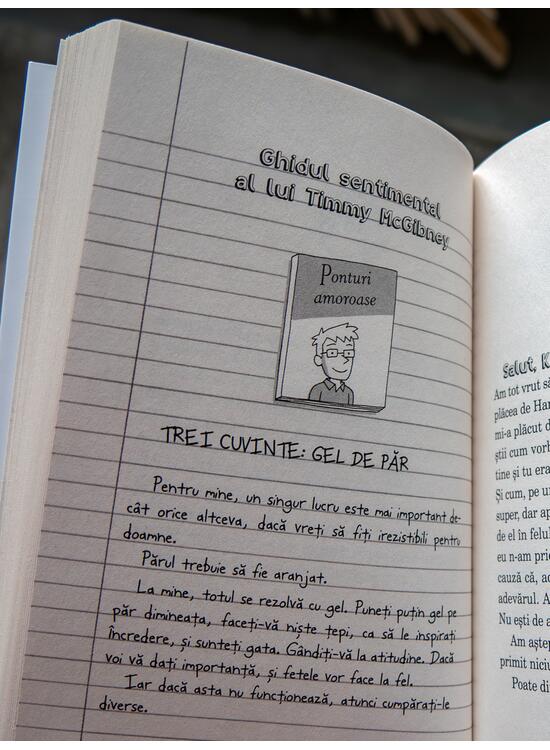 Ghidul sentimental
al lui Timmy McGibney
Ponturi
amoroase
TREI CUVINTE: GEL DE PĂR
Pentru mine, un singur lucru este mai important de-
cât orice altceva, dacă vreți să fiți irezistibili pentru
doamne.
Părul trebuie să fie aranjat.
La mine, totul se rezolvă cu gel. Puneți puțin gel pe
păr dimineața, faceți-vă niște țepi, ca să le inspirați
încredere, și sunteți gata. Gândiți-vă la atitudine. Dacă
voi vă dați importanță, și fetele vor face la fel.
Iar dacă asta nu funcționează, atunci cumpărați-le
diverse.
Salut, K
Am tot vrut să
plăcea de Har
mi-a plăcut d
știi cum vorb
tine și tu era
Și cum, pe u
super, dar ap
de el în felul
eu n-am prie
cauză că, ac
adevărul. A
Nu ești de a
Am aștep
primit niciu
Poate di